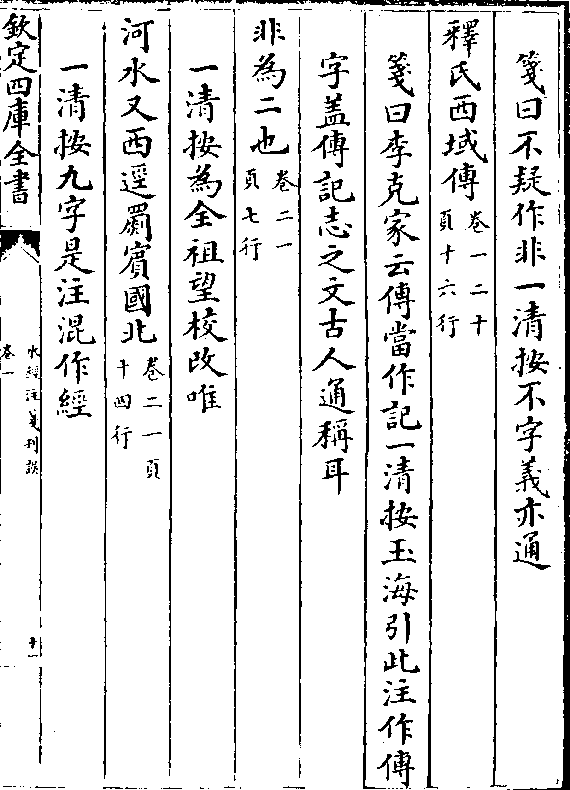 箋曰不疑作非一清按不字義亦通
釋氏西域傳卷一二十頁十六行
箋曰李克家云傳當作記一清按玉海引此注作傳
字盖傳記志之文古人通稱耳
非為二也卷二一頁七行
一清按為全祖望校改唯
河水又西逕罽賓國北卷二一頁十四行
一清按九字是注混作經
欽定四庫全書
水經注箋刊誤
卷一
十一